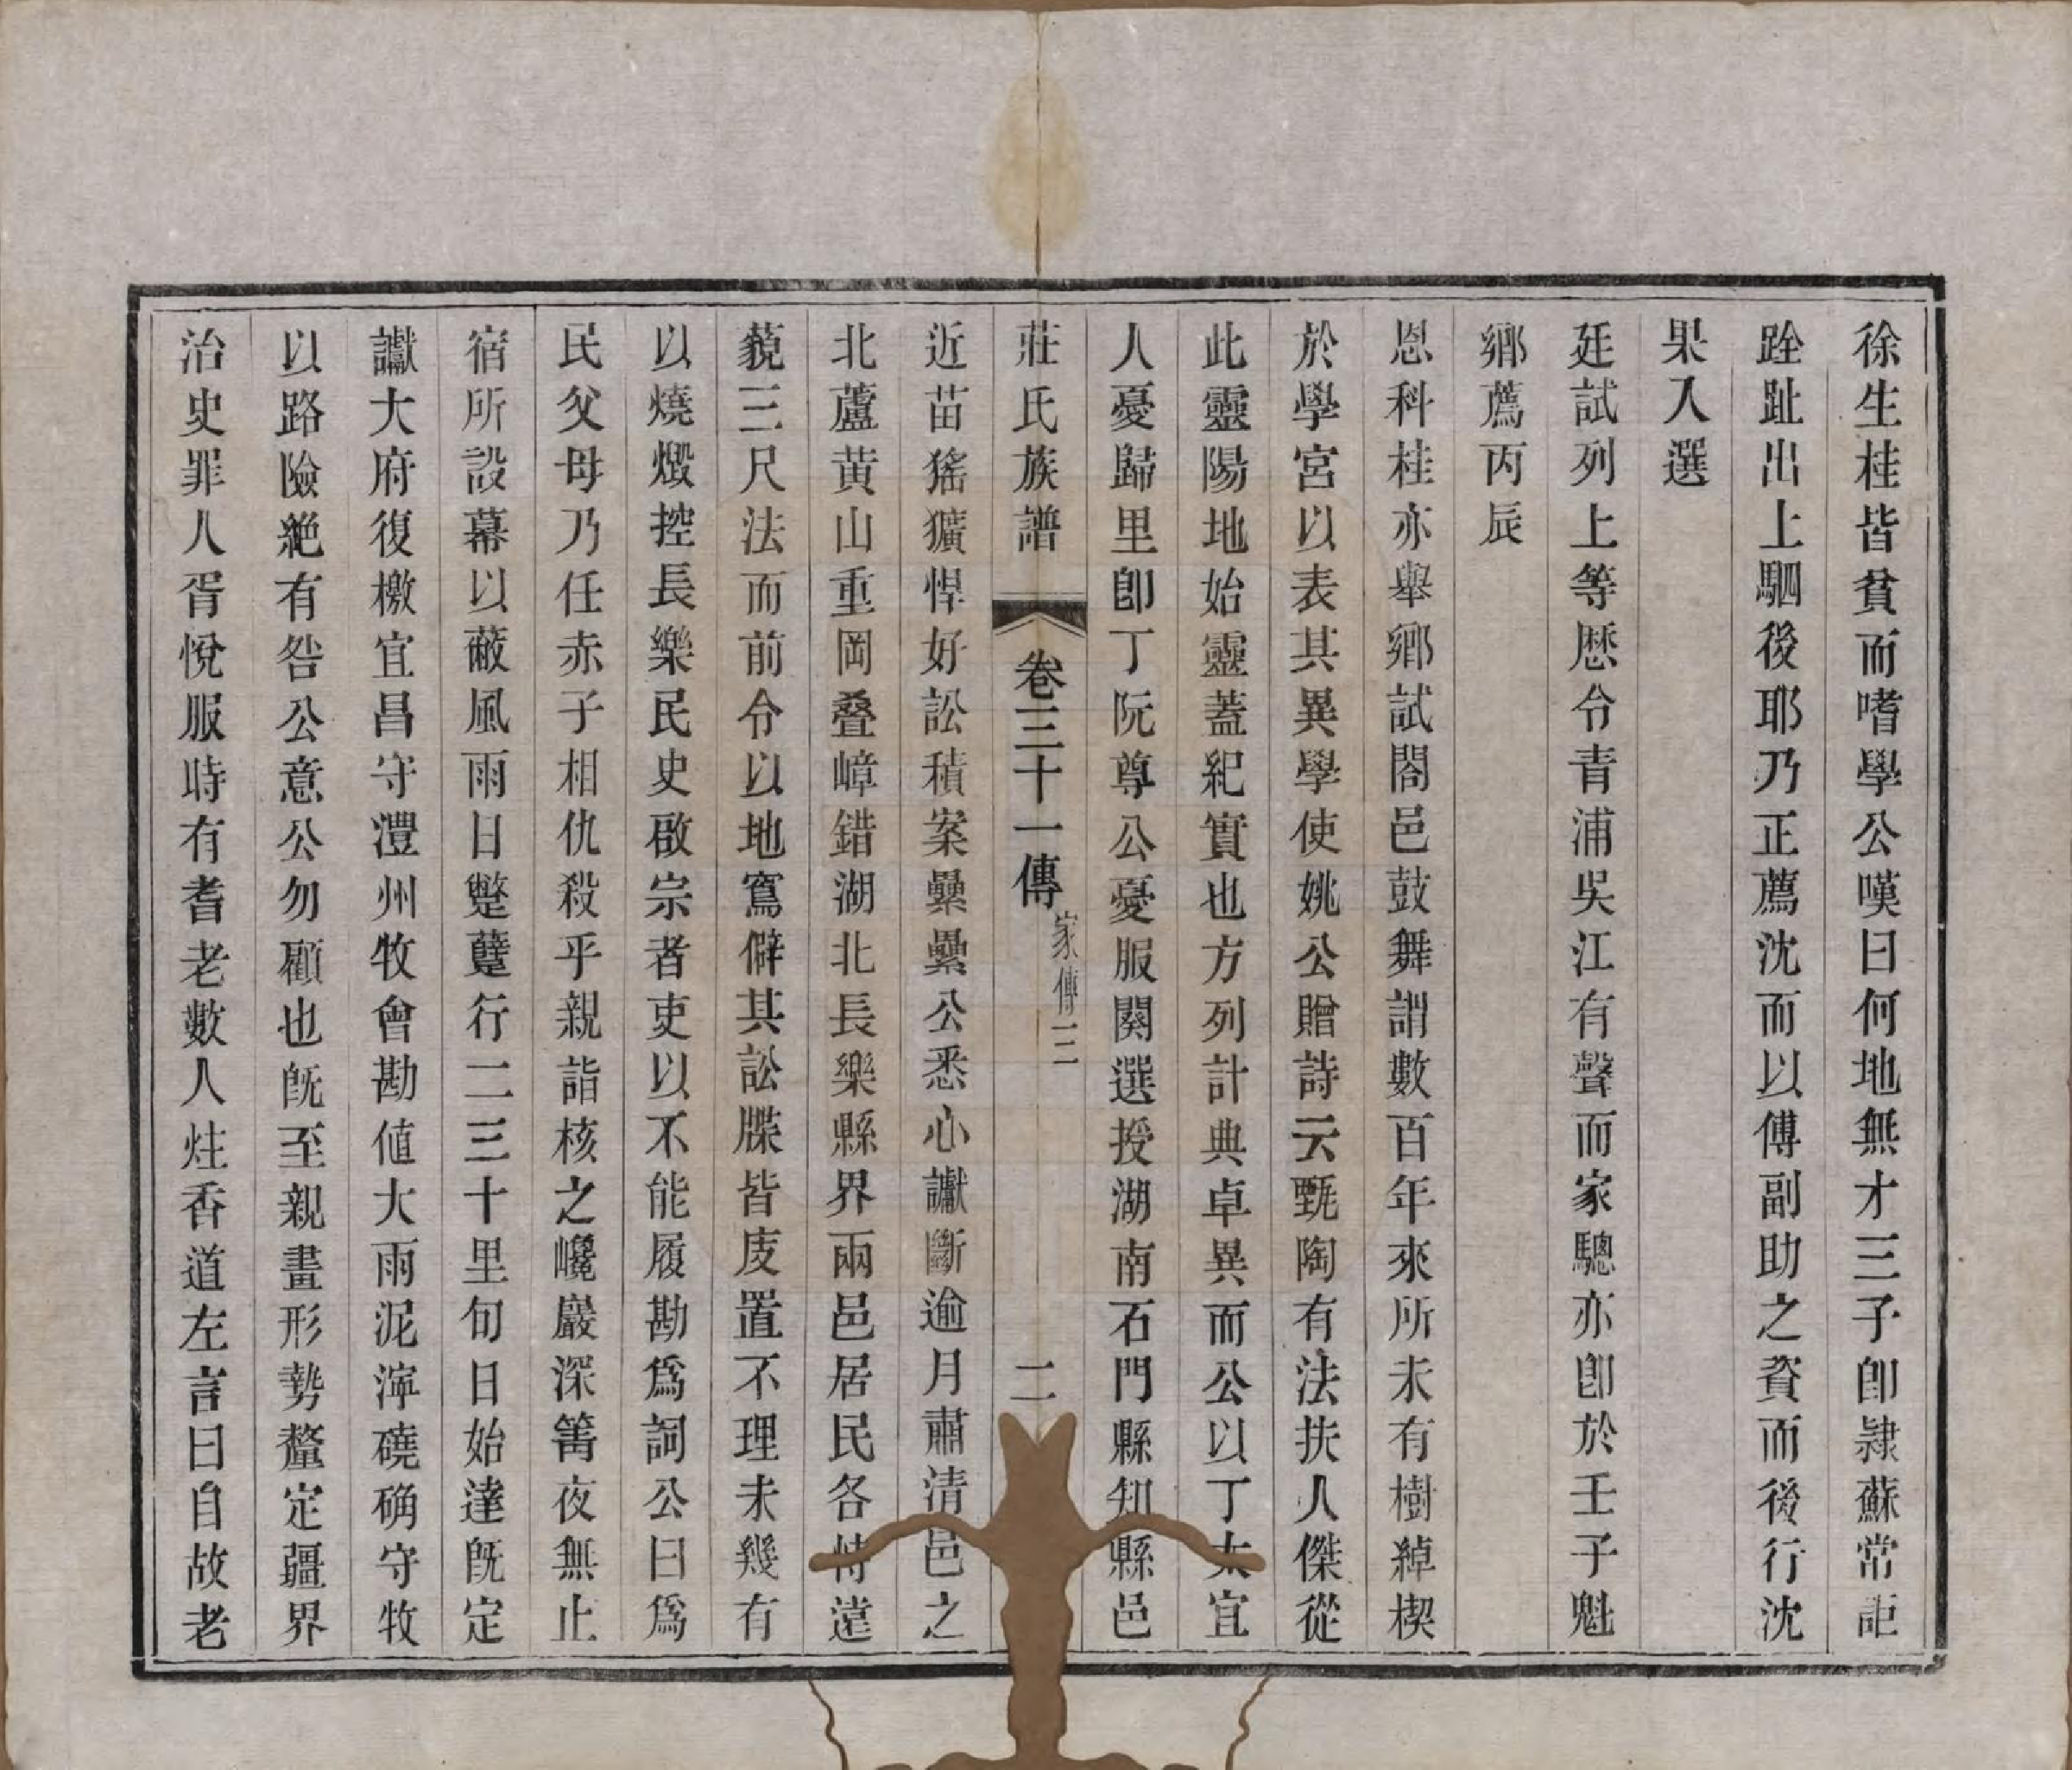 徐生桂皆貧而嗜學公嘆曰何地無才三子卽隷蘇常詎
跧趾出上駟後耶乃正薦沈而以傅副助之資而後行沈
果入選
廷試列上等歷令青浦吳江有聲而家驄亦卽於壬子魁
鄉薦丙辰
恩科桂亦舉鄉試閤邑鼓舞謂數百年來所未有樹綽楔
於學宮以表其異學使姚公贈詩云甄陶有法扶人傑從
此靈陽地始靈蓋紀實也方列計典卓異而公以丁太宜
人憂歸里卽丁阮尊公憂服闋選授湖南石門縣知縣邑
莊氏族譜 卷三十一傳 家傳三 二
近苗猺獷悍好訟積案纍纍公悉心讞斷逾月肅清邑之
北蘆黃山重岡叠嶂錯湖北長樂縣界兩邑居民各恃遠
藐三尺法而前令以地寫僻其訟牒皆庋置不理未幾有
以燒燬控長樂民史啟宗者吏以不能履勘爲詞公曰爲
民父母乃任赤子相仇殺乎親詣核之巉巖深箐夜無止
宿所設幕以蔽風雨日蹩躠行二三十里旬日始達旣定
讞大府復檄宜昌守澧州牧會勘値大雨泥濘磽确守牧
以路險絶有咎公意公勿顧也旣至親畫形勢釐定疆界
治史罪人胥悅服時有耆老數人炷香道左言曰自故老